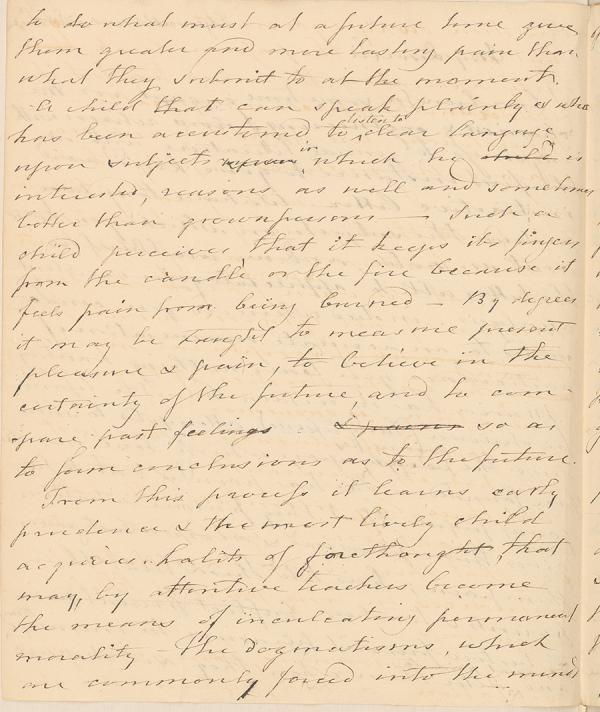 to do what must at a future time give
them greater and more lasting pain than
what they submit to at the moment.
A child that can speak plainly & who
has been accustomed to listen to clear language
upon subjects in which he child is
interested, reasons as well and sometimes
better than grown persons — Such a
child perceives that it keeps its fingers
from the candle or the fire because it
feels pain from being burned — By degrees
it may be taught to measure present
pleasure & pain, to believe in the
certainty of the future, and to com-
pare past feelings & pains so as
to form conclusions as to the future.
From this process it learns early
prudence & the most lively child
acquires habits of forethought, that
may, by attentive teachers become
the means of inculcating permanent
morality — The dogmatisms, which
are commonly forced into the minds